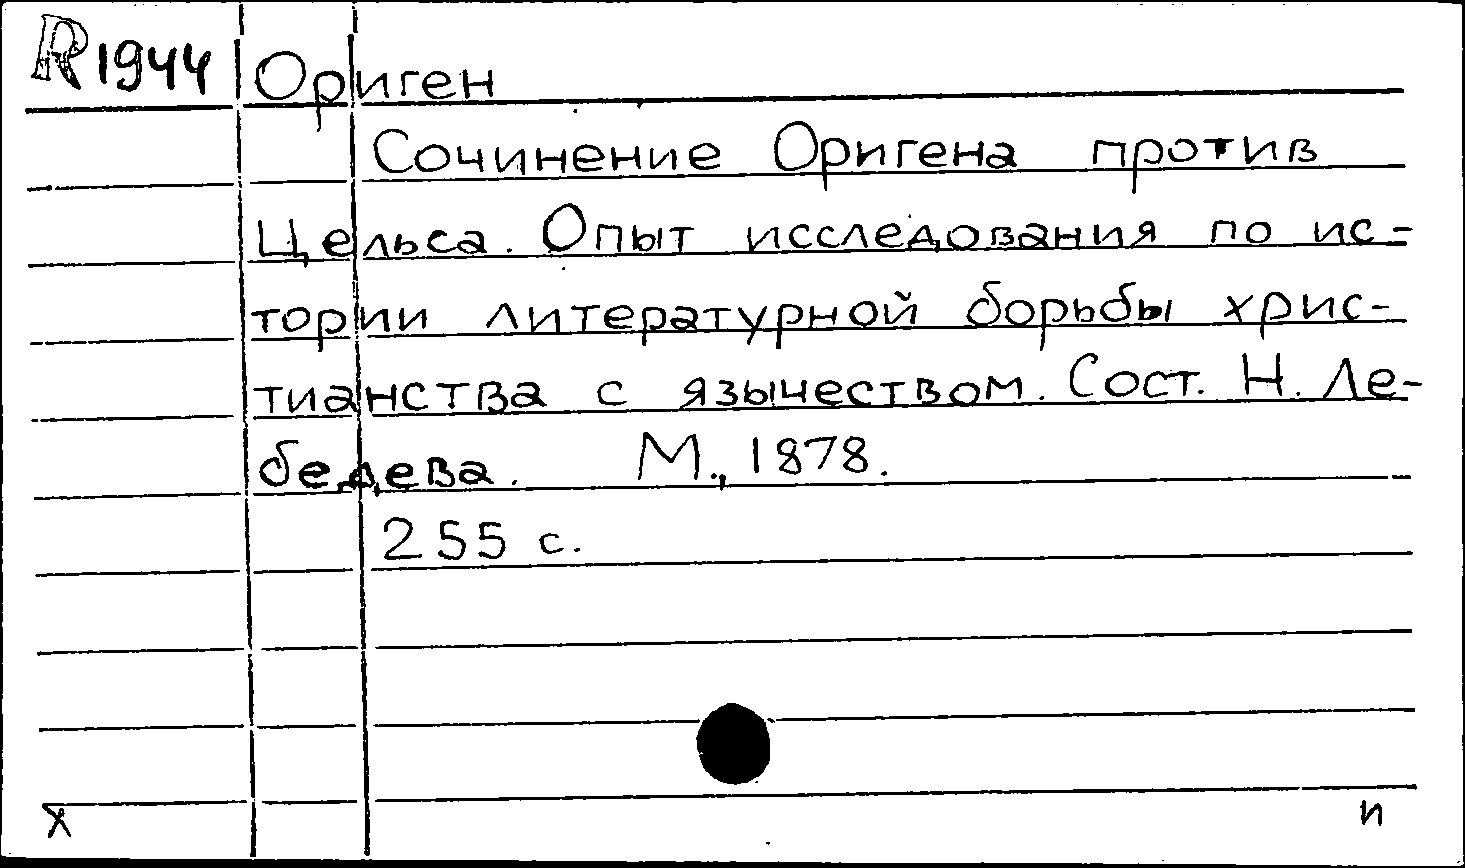 R1944 Ориген
Сочинение Оригена против
Цельса. Опыт исследования по ис=
тории литературной борьбы хрис-
тианства с язычеством. Сост. Н. Ле-
бедева. М., 1878.
255 с.
х и